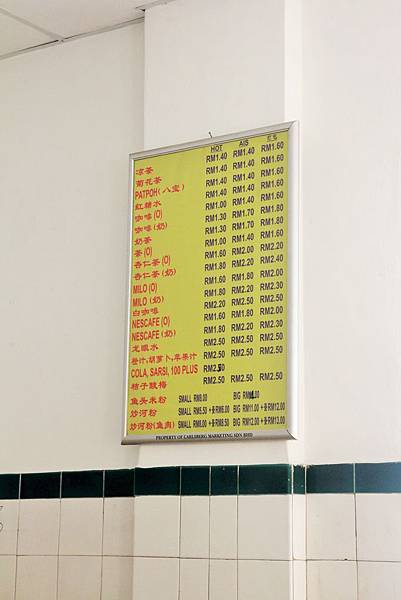 HOT AIS 打包
凉茶 RM1.40 RM1.40 RM1.60
菊花茶 RM1.40 RM1.40 RM1.60
PATPOH(八宝) RM1.40 RM1.40 RM1.60
红糖水 RM1.40 RM1.40 RM1.60
咖啡(O) RM1.00 RM1.40 RM1.60
咖啡(奶) RM1.30 RM1.70 RM1.80
奶茶 RM1.30 RM1.70 RM1.80
茶(O) RM1.00 RM1.40 RM1.60
杏仁茶(O) RM1.60 RM2.00 RM2.20
杏仁茶(奶) RM1.80 RM2.20 RM2.40
MILO(O) RM1.60 RM2.00 RM2.00
MILO(奶) RM1.80 RM2.20 RM2.40
白咖啡 RM2.20 RM2.50 RM2.50
NESCAFE(O) RM1.60 RM2.00 RM2.20
NESCAFE(奶) RM1.80 RM2.20 RM2.30
龙眼水 RM2.50 RM2.50 RM2.50
橙汁,胡萝卜,苹果汁 RM2.50 RM2.50 RM2.50
COLA, SARSI, 100 PLUS RM2.50
桔子酸梅 RM2.50 RM2.50 RM2.50
鱼头米粉 SMALL RM8.00 BIG
炒河粉 SMALL RM5.50 +蛋RM6.00 BIG RM11.00 +蛋RM12.00
炒河粉(鱼肉) SMALL RM8.00 +蛋RM8.50 BIG RM12.00 +蛋RM13.00
PROPERTY OF CARLSBERG MARKETING SDN BHD